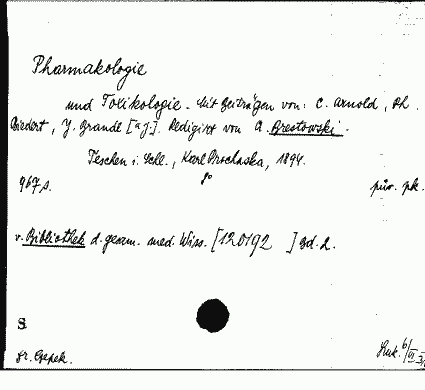 Pharmakologie
und Toxikologie - Mit Beiträgen von: C. Arnold, Ph.
Biedert, J. Brandl [a j.]. Redigirt von A. Brestowski.
Teschen i. Schl., Karl Prochaska, 1894.
8°
967 s. pův. pk.
v. Bibliothek d. gesam. med. Wiss. [120192 ] Bd. 2.
S
dr. Čepek.